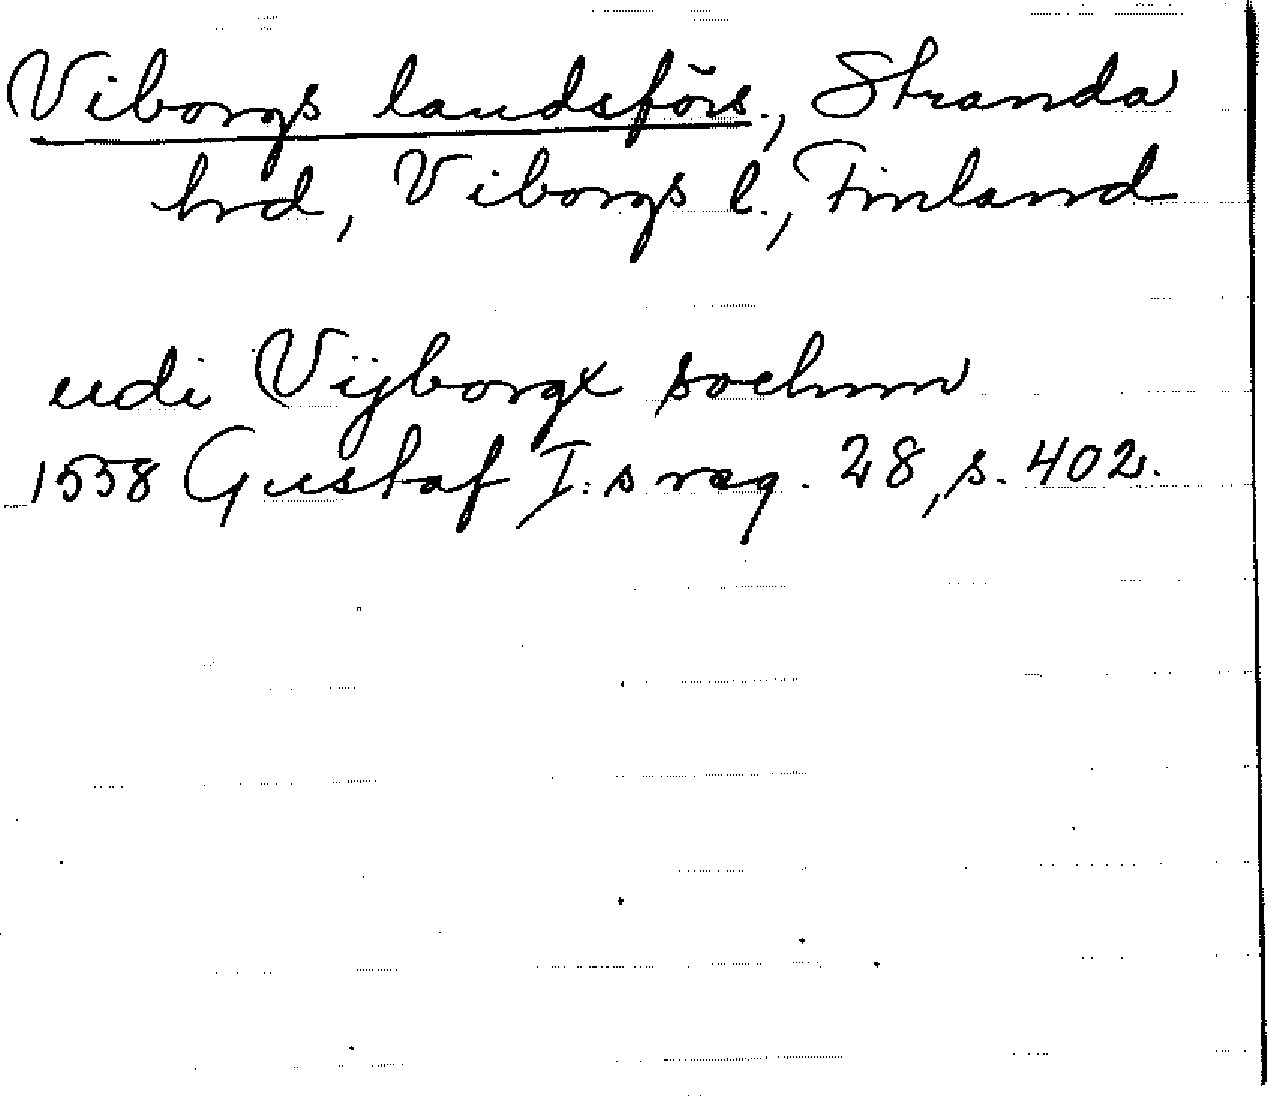 Viborgs landsförs., Stranda
hrd, Viborgs l., Finland
udi Vÿborgx sochnn
1558 Gustaf I:s reg. 28, s. 402.